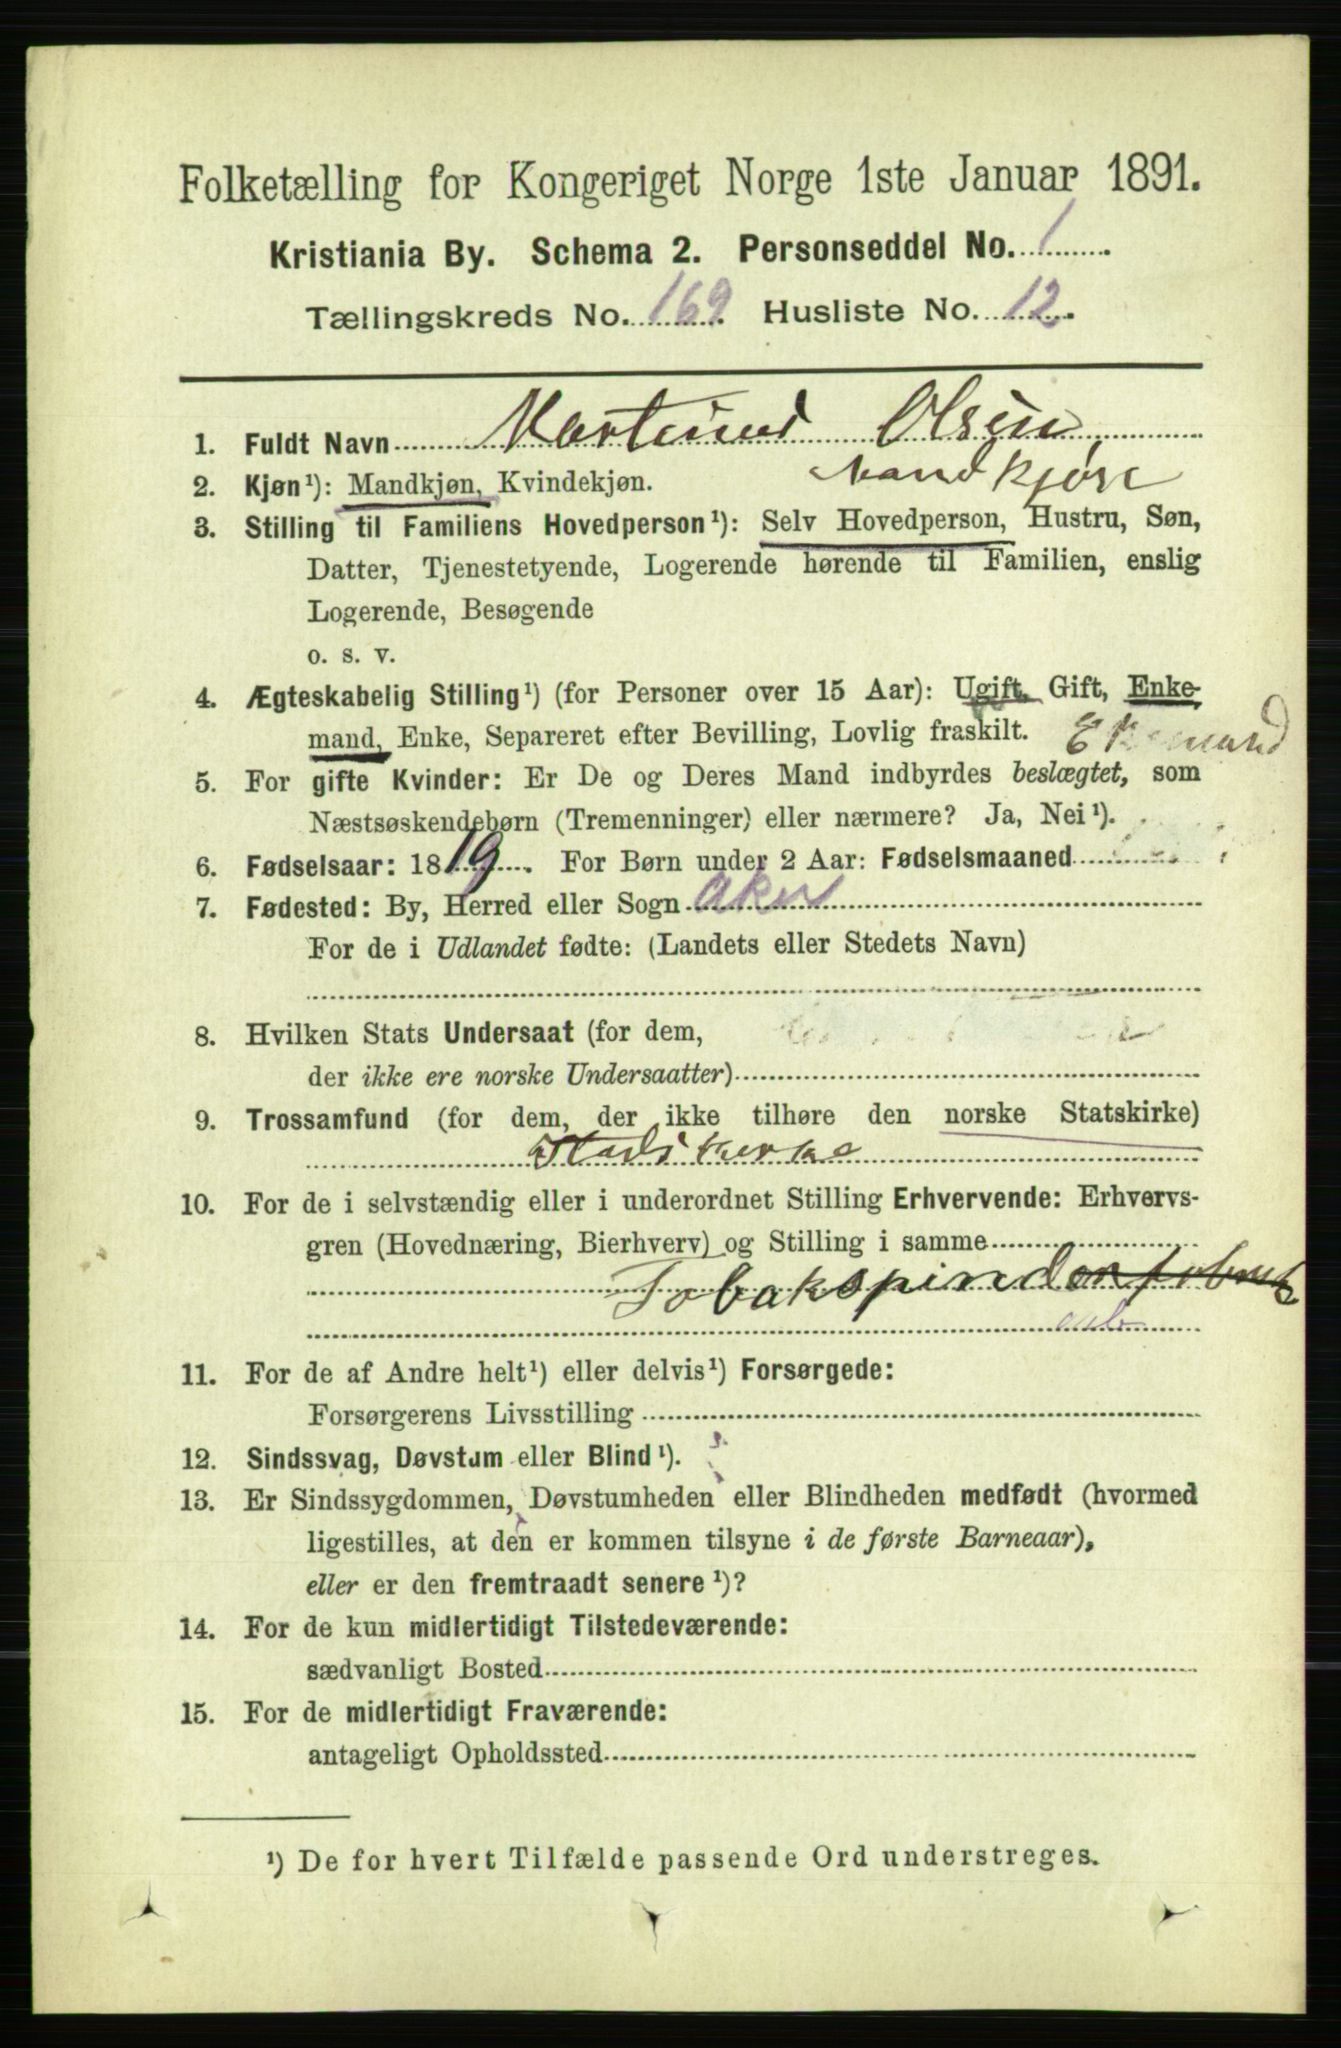 Folketælling for Kongeriget Norge 1ste Januar 1891.
Kristiania By. Schema 2. Personseddel No. 1
Tællingskreds No. 169 Husliste No. 12.
1. Fuldt Navn Martinus Olsen
2. Kjøn¹): Mandkjøn, Kvindekjøn. Mandkjøn
3. Stilling til Familiens Hovedperson¹): Selv Hovedperson, Hustru, Søn,
Datter, Tjenestetyende, Logerende hørende til Familien, enslig
Logerende, Besøgende
o. s. v.
4. Ægteskabelig Stilling¹) (for Personer over 15 Aar): Ugift, Gift, Enke-
mand, Enke, Separeret efter Bevilling, Lovlig fraskilt.
5. For gifte Kvinder: Er De og Deres Mand indbyrdes beslægtet, som
Næstsøskendebørn (Tremenninger) eller nærmere? Ja, Nei¹).
6. Fødselsaar: 1819. For Børn under 2 Aar: Fødselsmaaned
7. Fødested: By, Herred eller Sogn Aker
For de i Udlandet fødte: (Landets eller Stedets Navn)
8. Hvilken Stats Undersaat (for dem,
der ikke ere norske Undersaatter)
9. Trossamfund (for dem, der ikke tilhøre den norske Statskirke)
10. For de i selvstændig eller i underordnet Stilling Erhvervende: Erhvervs-
gren (Hovednæring, Bierhverv) og Stilling i samme
Tobakspinder
11. For de af Andre helt¹) eller delvis¹) Forsørgede:
Forsørgerens Livsstilling
12. Sindssvag, Døvstum eller Blind¹).
13. Er Sindssygdommen, Døvstumheden eller Blindheden medfødt (hvormed
ligestilles, at den er kommen tilsyne i de første Barneaar),
eller er den fremtraadt senere¹)?
14. For de kun midlertidigt Tilstedeværende:
sædvanligt Bosted
15. For de midlertidigt Fraværende:
antageligt Opholdssted
¹) De for hvert Tilfælde passende Ord understreges.